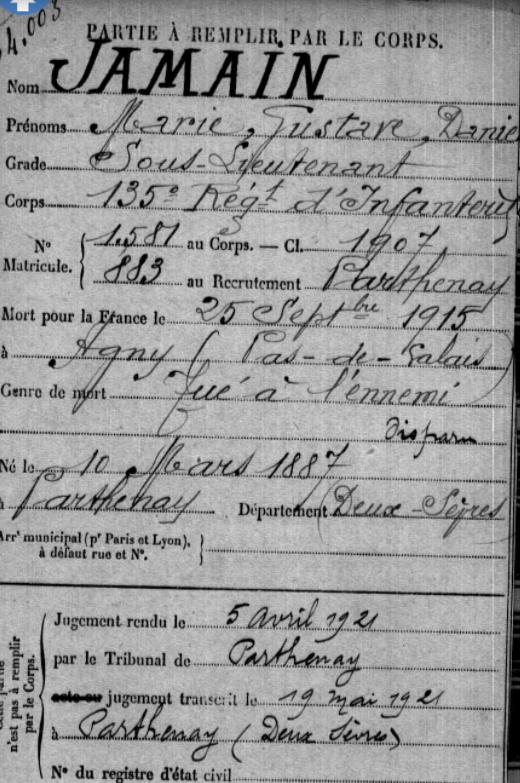 4.003
PARTIE À REMPLIR PAR LE CORPS.
Nom JAMAIN
Prénoms Marie, Gustave, Danie
Grade Sous-Lieutenant
Corps 135e Régt d'Infanterie
N° Matricule. { 1.581 au Corps. — Cl. 1907
883 au Recrutement Parthenay
Mort pour la France le 25 Septbre 1915
à Agny (Pas-de-Calais)
Genre de mort Tué à l'ennemi
Disparu
Né le 10 Mars 1887
à Parthenay Département Deux-Sèvres
Arrt municipal (pr Paris et Lyon), à défaut rue et N°. }
Cette partie n'est pas à remplir par le Corps.
Jugement rendu le 5 Avril 1921
par le Tribunal de Parthenay
acte ou jugement transcrit le 19 mai 1921
à Parthenay (Deux Sèvres)
N° du registre d'état civil